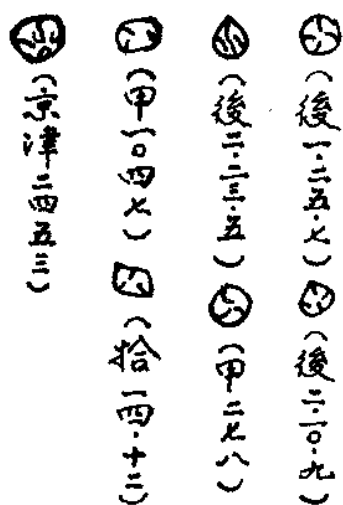 (後一·二五·七) (後二·二〇·九)
(後二·二三·五) (甲二七八)
(甲一〇四七) (拾一四·十二)
(京津二四五三)